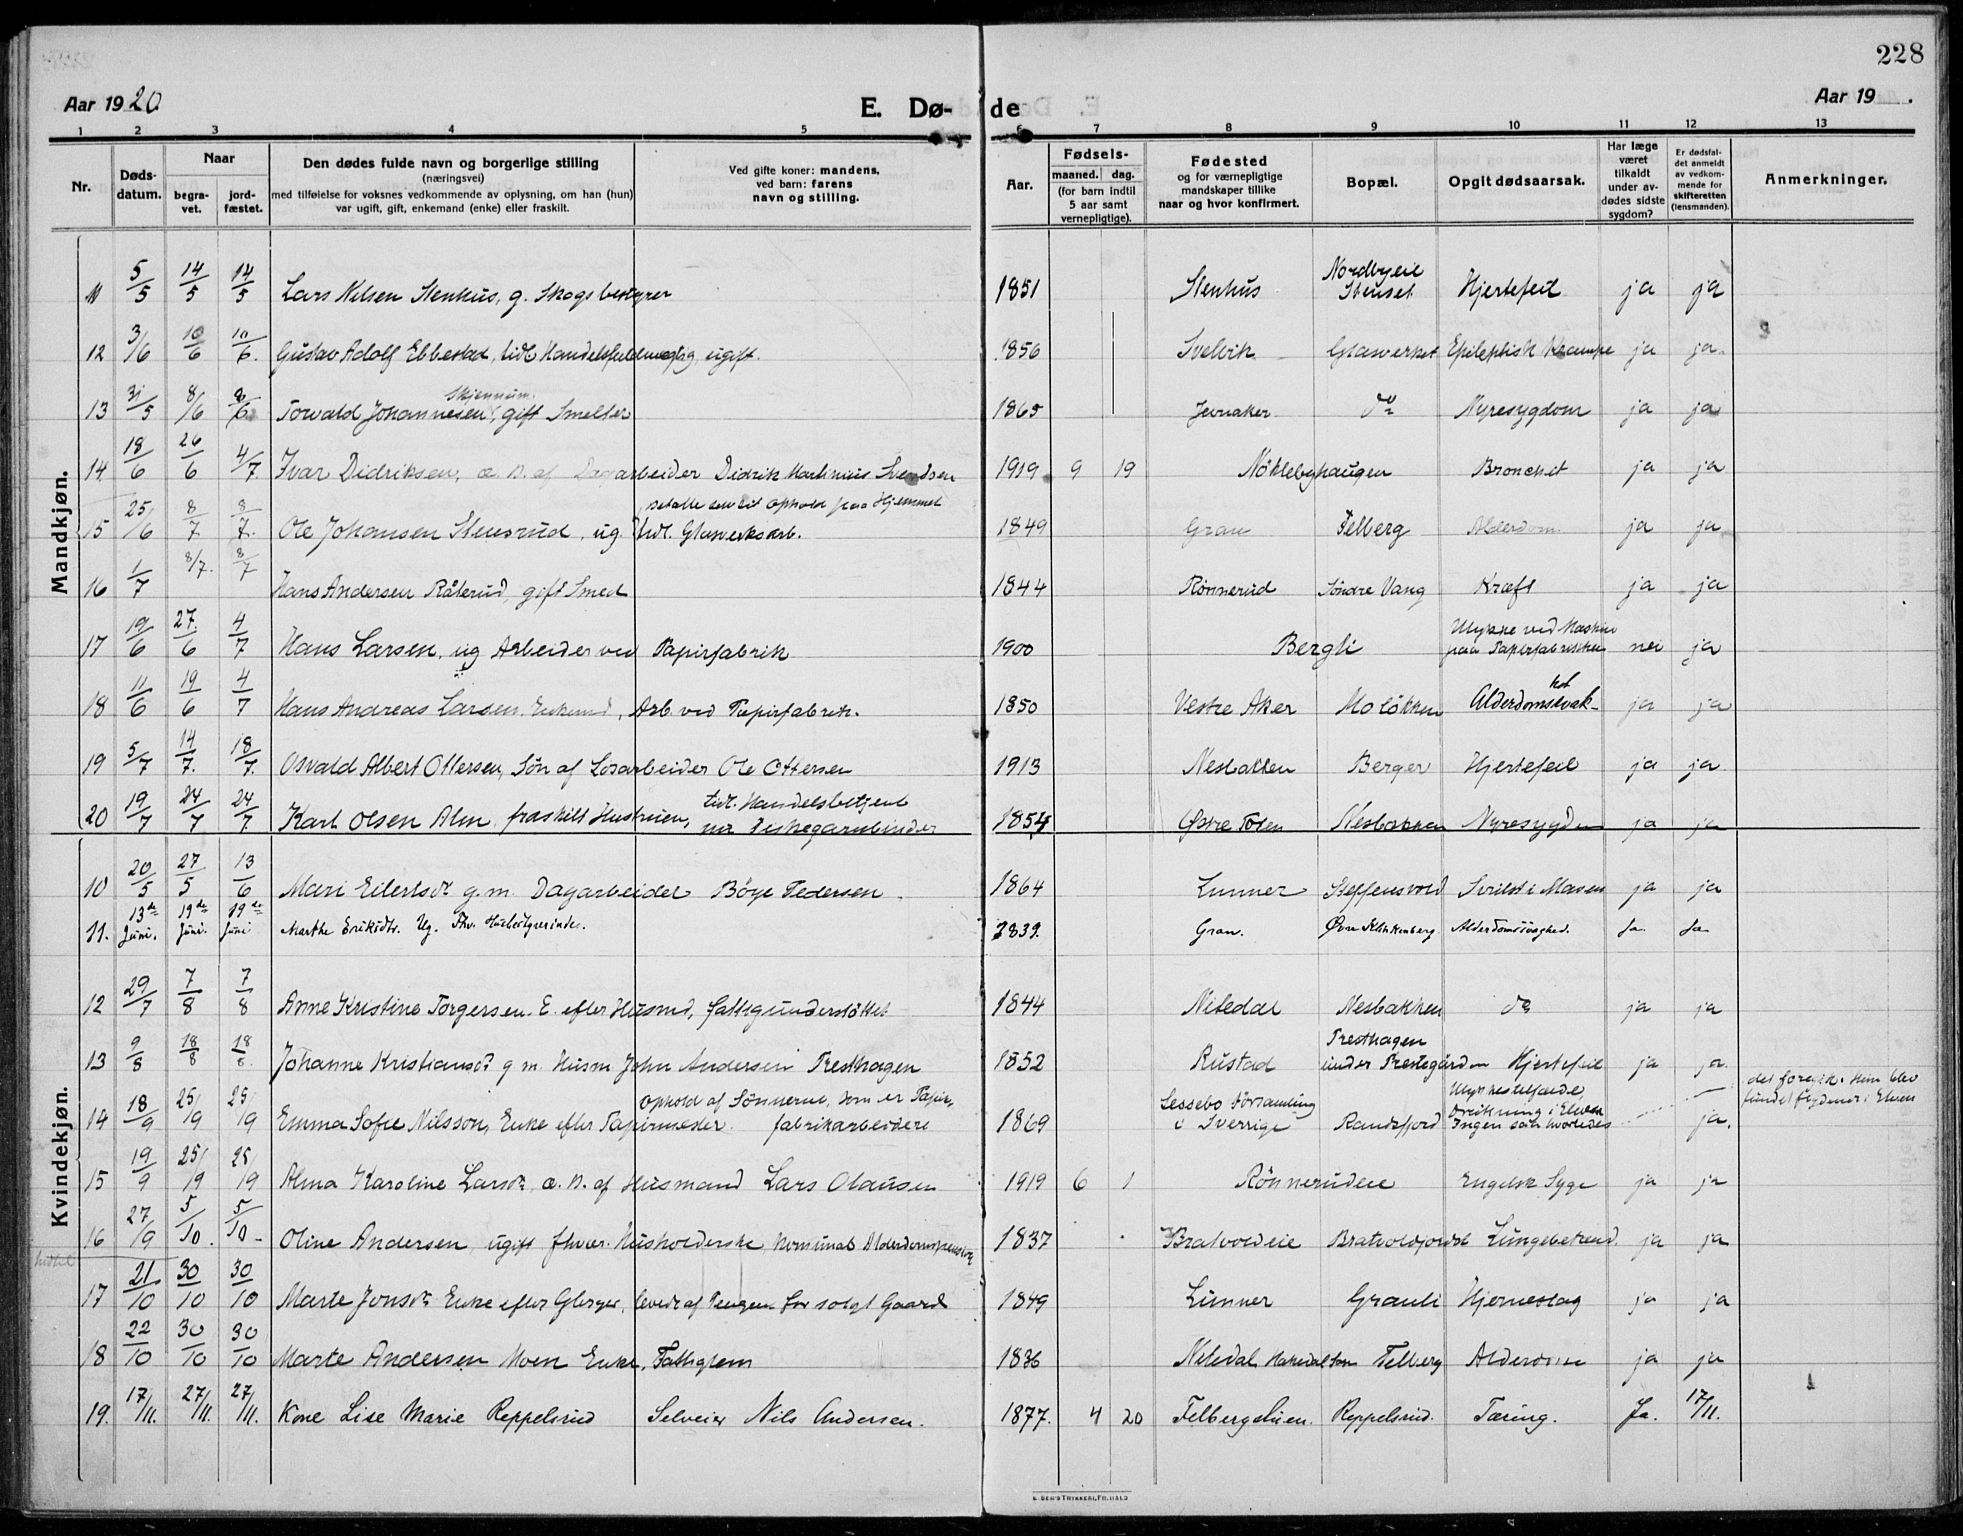 228
Aar 1920
E. Dø-
de
Aar 19   .
1 2 3 4 5 6 7 8 9 10 11 12 13
Nr.
Døds-
datum.
Naar
begra-
vet.
jord-
fæstet.
Den dødes fulde navn og borgerlige stilling
(næringsvei)
med tilføielse for voksnes vedkommende av oplysning, om han (hun)
var ugift, gift, enkemand (enke) eller fraskilt.
Ved gifte koner: mandens,
ved barn: farens
navn og stilling.
Aar.
Fødsels-
maaned. dag.
(for barn indtil
5 aar samt
vernepligtige).
Fødested
og for værnepligtige
mandskaper tillike
naar og hvor konfirmert.
Bopæl.
Opgit dødsaarsak.
Har læge
været
tilkaldt
under av-
dødes sidste
sygdom?
Er dødsfal-
det anmeldt
av vedkom-
mende for
skifteretten
(lensmanden).
Anmerkninger.
Mandkjøn.
11 5/5 14/5 14/5 Lars Nilsen Stenhus, g. Skogsbestyrer 1851 Stenhus Nordbyeie Hjertefeil ja ja
12 3/6 10/6 10/6. Gustav Adolf Ebbestad, tidl. ugift. 1856 Svelvik Glasverket Epileptisk Krampe ja ja
Skjennum
13 31/5 8/6 8/6 Torvald Johannesen, gift Smelter 1865 Jevnaker do Nyresygdom ja ja
14. 18/6 26/6 4/7 Ivar Didriksen, æ. B. af Dagarbeider Didrik Martinius Svendsen 1919 9 19 Nöklebyhaugen Bronchit ja ja
betalte selv sit ophold paa Hjemmet
15 25/6 8/7 8/7. Ole Johansen Stensrud, ug. tidl. Glasverksarb. 1849 Gran Felberg Alderdom ja ja
16 1/7 8/7. 8/7 Hans Andersen Råterud, gift Smed 1844 Rönnerud Söndre Vang Kræft ja ja
Ulykke ved Maskin
17 19/6 27/6 4/7 Hans Larsen, ug Arbeider ved Papirfabrik 1900 Bergli paa Papirfabrikken nei ja
18 11/6 19/6 4/7 Hans Andreas Larsen, Enkemd, Arb. ved Papirfabrik. 1850 Vestre Aker Moløkken Alderdomssvak- het ja ja
19 5/7 14/7. 18/7. Osvald Albert Ottersen, Sön af Løsarbeider Ole Ottersen 1913 Nesbakken Berger Hjertefeil ja ja
tidl. Handelsbetjent
20 19/7 24/7 24/7 Karl Olsen Alm, fraskilt Hustruen, nu Fiskegarnbinder 1854 Østre Toten Nesbakken Nyresygdom ja ja
Kvindekjøn.
10 20/5 27/5 13/6 Mari Eilertsdt g. m. Dagarbeider Böye Pedersen. 1864 Lunner Steffensvold Svulst i Maven ja ja
11. 13de Juni. 19de Juni. 19de Juni Marthe Eriksdtr. Ug. Fhv. Husbestyrerinde. 1839. Gran. Øvre Klinkenberg Alderdomssvaghed. Ja. Ja
12 29/7 7/8 7/8 Anne Kristine Torgersen. E. efter Husmd, fattigunderstöttet 1844 Nitedal Nesbakken do ja ja
Presthagen
13 9/8 18/8 18/8. Johanne Kristiansdt g m. Husm. John Andersen Presthagen 1852 Rustad under Prestegården Hjertefeil ja ja
ophold af Sönnerne, som er Papir-
Lessebo Församling Ulykkestilfælde, det foregik. Hun blev
14 18/9 25/9 25/9 Emma Sofie Nilsson, Enke efter Papirmester. fabrikarbeidere 1869 i Sverrige Randsfjord Drukning i Elven ja. fundet flydende i Elven
Ingen saa hvorledes
15 19/9 25/9 25/9 Alma Karoline Larsdt, æ. B. af Husmand Lars Olausen 1919 6 1 Rönnerudeie Engelsk Syge ja ja
16 27/9 5/10. 5/10 Oline Andersen, ugift fhvær. Husholderske, Kommunal Alderdomspension 1837 Bratvoldeie Lungebetend. ja ja
17 21/10 30/10 30/10 Marte Jonsdt Enke efter Gbryer, levede af Pengene for solgt Gaard 1849 Lunner Granli Hjerneslag ja ja
18 22/10 30/10 30/10 Marte Andersen Moen Enke, Fattiglem 1836 Nitedal, Hakedal Felberg Alderdom ja ja
19. 17/11. 27/11. 27/11. Kone Lise Marie Reppelsrud Selveier Nils Andersen. 1877. 4 20 Felbergshien. Reppelsrud. Tæring. Ja. 17/11.